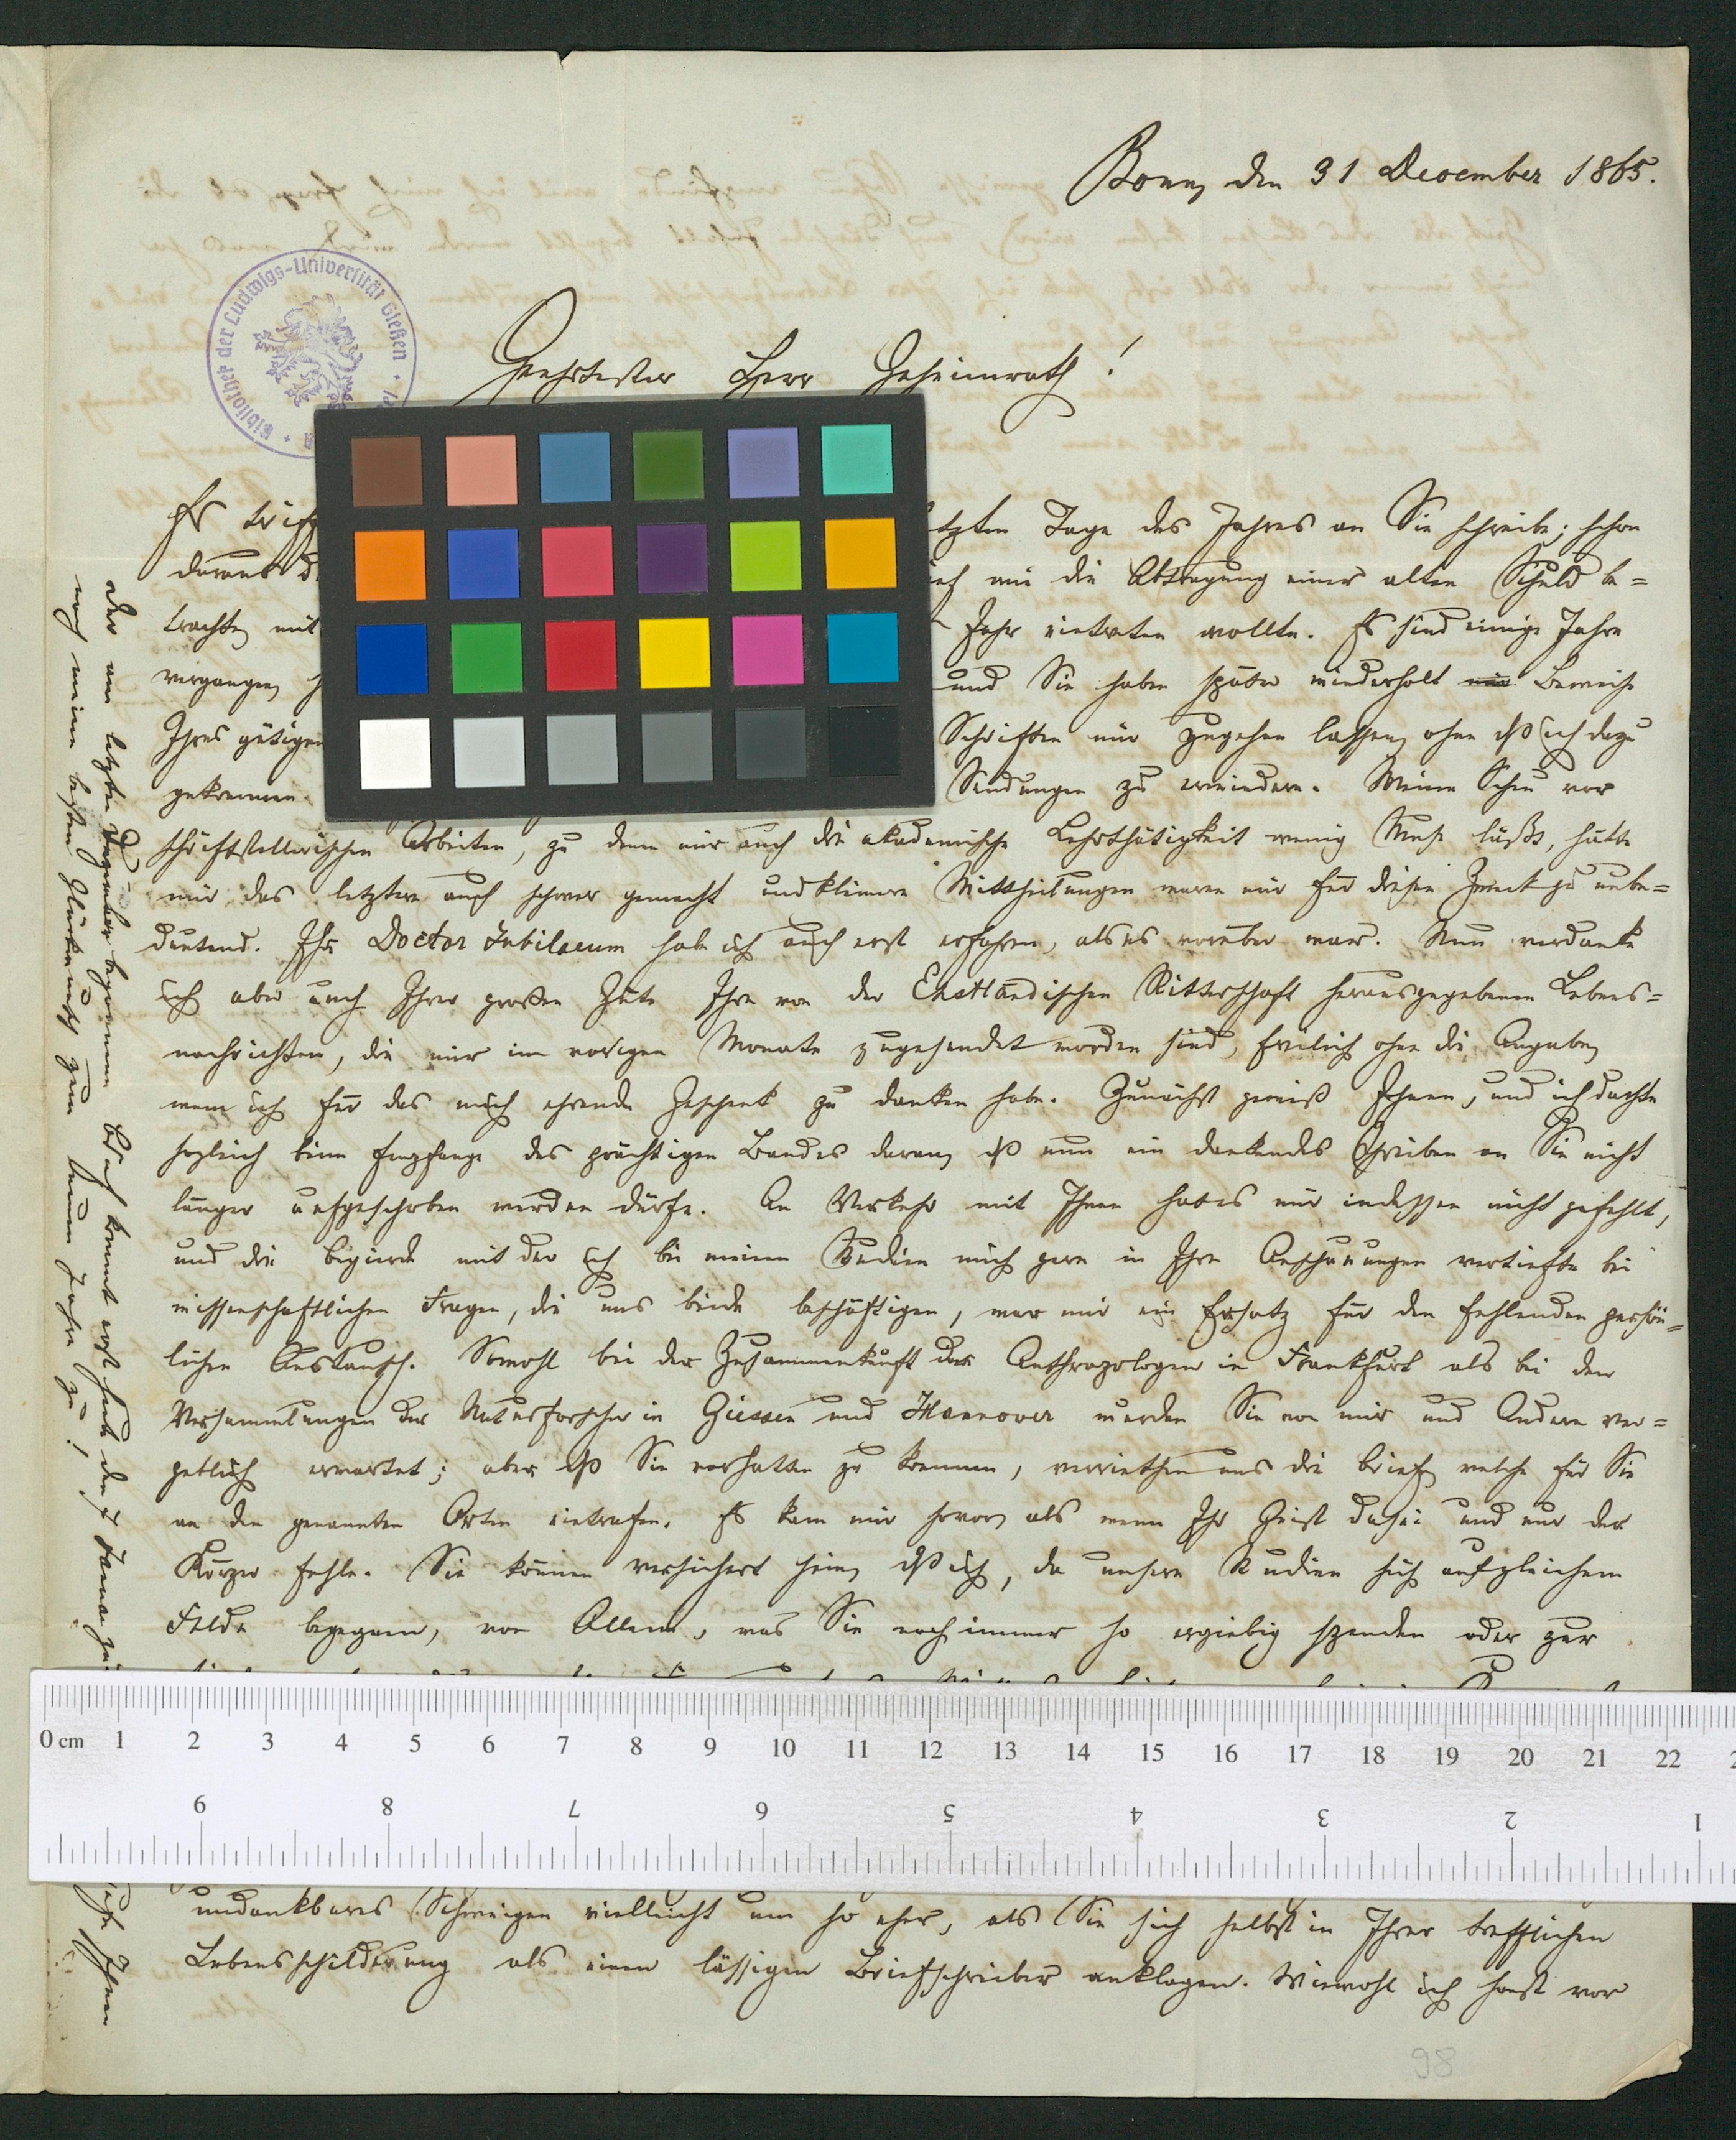 Bonn, den 31 December 1865.
Bibliothek der Ludwigs-Universität Gießen
Geehrtester Herr Geheimrath!
Es trif letzten Tage des Jahres an Sie schreibe; schon
daraus d ich mir die Abtragung einer alten Schuld be=
trachte, mit Jahr eintreten wollte. Es sind einige Jahre
vergangen, und Sie haben später wiederholt Beweise
Ihres gütigen Schriften mir zugehen lassen, ohne daß ich dazu
gekommen Sendungen zu erwiedern. Meine Scheu vor
schriftstellerischen Arbeiten, zu denen mir auch die akademische Lehrthätigkeit wenig Muse läßt, hatte
mir das letztere auch schwer gemacht und kleinere Mittheilungen waren mir für diesen Zweck zu unbe=
deutend. Ihr Doctor Jubilaeum habe ich auch erst erfahren, als es vorüber war. Nun verdanke
ich aber auch Ihrer großen Güte Ihre von der Ehstländischen Ritterschaft herausgegebenen Lebens=
nachrichten, die mir im vorigen Monate zugesendet worden sind, freilich ohne die Angabe,
wem ich für das mich ehrende Geschenk zu danken habe. Zunächst gewiß Ihnen, und ich dachte
sogleich beim Empfange des prächtigen Bandes daran, daß nun ein dankendes Schreiben an Sie nicht
länger aufgeschoben werden dürfe. An Verkehr mit Ihnen hat es mir indessen nicht gefehlt,
und die Begierde mit der ich bei meinen Studien mich gern in Ihre Anschauungen vertiefte bei
wissenschaftlichen Fragen, die uns beide beschäftigen, war mir ein Ersatz für den fehlenden persön=
lichen Austausch. Sowohl bei der Zusammenkunft der Anthropologen in Frankfurt als bei den
Versammlungen der Naturforscher in Giessen und Hannover wurden Sie von mir und Andern ver=
geblich erwartet; aber daß Sie vorhatten zu kommen, verriethen uns die Briefe, welche für Sie
an den genannten Orten eintrafen. Es kam mir so vor, als wenn Ihr Geist dasei und nur der
Körper fehle. Sie können versichert sein, daß ich, da unsere Studien sich auf gleichem
Felde begegnen, von Allem, was Sie noch immer so ergiebig spenden oder zur
undankbares Schweigen vielleicht um so eher, als Sie sich selbst in Ihrer trefflichen
Lebensschilderung als einen lässigen Briefschreiber anklagen. Wiewohl ich sonst vor
98
Der am letzten Dezember begonnene Brief kommt erst heute den Ihnen
noch meine besten Glückwünsche zum neuen Jahre zu!
0 cm 1 2 3 4 5 6 7 8 9 10 11 12 13 14 15 16 17 18 19 20 21 22
9 8 7 6 5 4 3 2 1